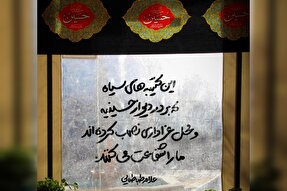 حسین
حسین
حسین
این کتیبه‌های سیاه
که بر در و دیوار حسینیه
و محل عزاداری نصب کرده‌اند
ما را شفاعت می‌کنند.
علامه طباطبایی